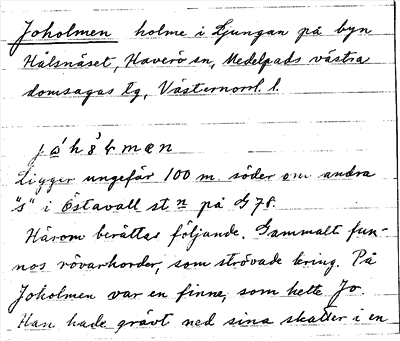 Joholmen holme i Ljungan på byn
Hålsnäset, Haverö sn, Medelpads västra
domsagas tg, Västernorrl. l.
Ligger ungefär 100 m. söder om andra
"s" i Östavall st n på G 78.
Härom berättas följande. Gammalt fun-
nos rövarhorder, som strövade kring. På
Joholmen var en finne, som hette Jo.
Han hade grävt ned sina skatter i en